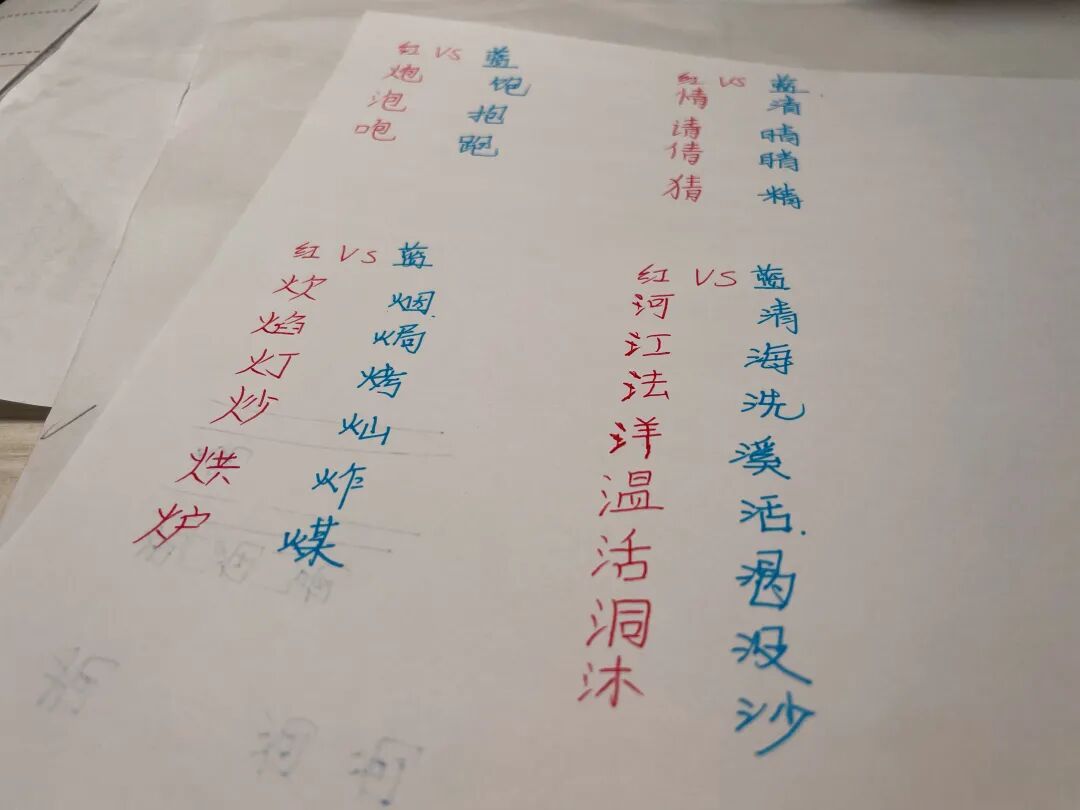 红 VS 蓝
炮 饱
泡 抱
咆 跑
红 VS 蓝
情 清
请 晴
倩 睛
猜 精
红 VS 蓝
炊 烟
焰 焗
灯 烤
炒 灿
烘 炸
炉 煤
红 VS 蓝
河 清
江 海
法 洗
洋 溪
温 活
活 渴
洞 没
沐 沙